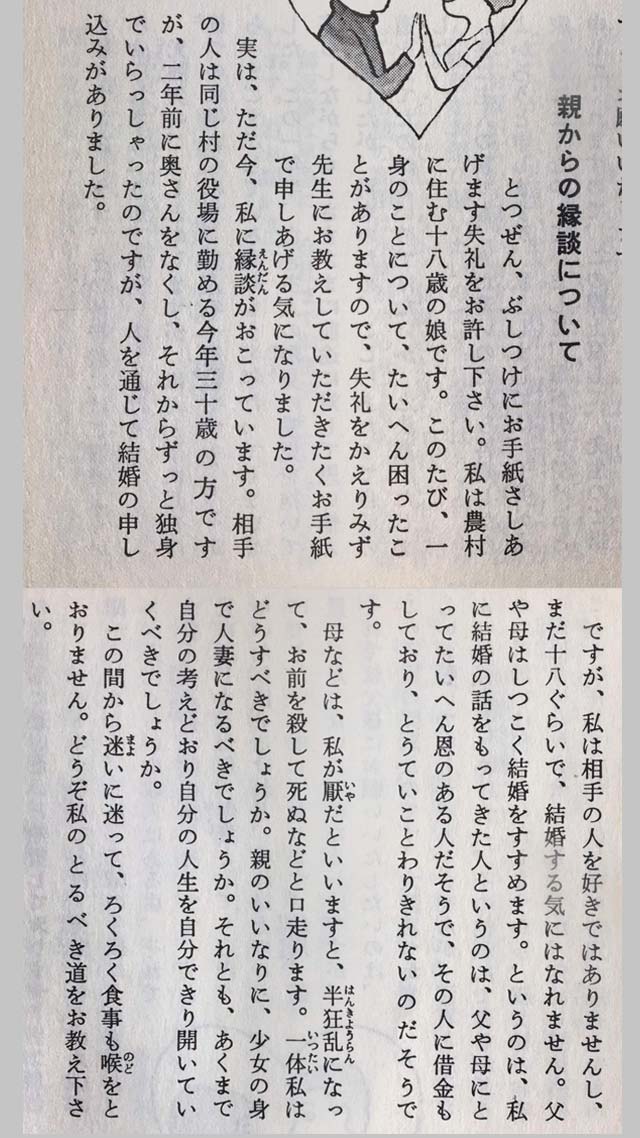 親からの縁談について
とつぜん、ぶしつけにお手紙さしあ
げます失礼をお許し下さい。私は農村
に住む十八歳の娘です。このたび、一
身のことについて、たいへん困ったこ
とがありますので、失礼をかえりみず
先生にお教えしていただきたくお手紙
で申しあげる気になりました。
実は、ただ今、私に縁談がおこっています。相手
の人は同じ村の役場に勤める今年三十歳の方です
が、二年前に奥さんをなくし、それからずっと独身
でいらっしゃったのですが、人を通じて結婚の申し
込みがありました。
ですが、私は相手の人を好きではありませんし、
まだ十八ぐらいで、結婚する気にはなれません。父
や母はしつこく結婚をすすめます。というのは、私
に結婚の話をもってきた人というのは、父や母にと
ってたいへん恩のある人だそうで、その人に借金も
しており、とうていことわりきれないのだそうで
す。
母などは、私が厭だといいますと、半狂乱になっ
て、お前を殺して死ぬなどと口走ります。一体私は
どうすべきでしょうか。親のいいなりに、少女の身
で人妻になるべきでしょうか。それとも、あくまで
自分の考えどおり自分の人生を自分できり開いてい
くべきでしょうか。
この間から迷いに迷って、ろくろく食事も喉をと
おりません。どうぞ私のとるべき道をお教え下さ
い。